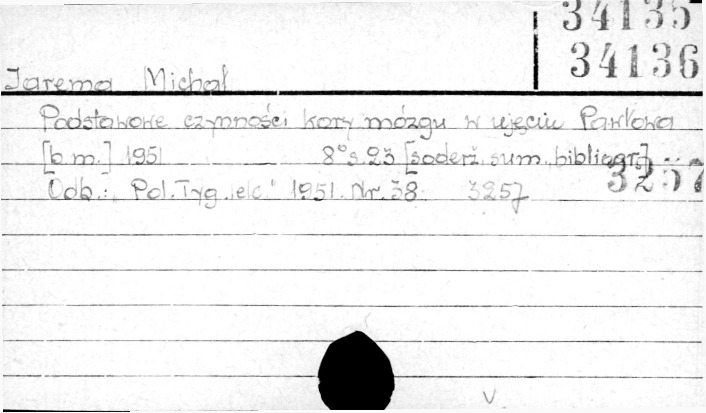 34135
34136
Jarema Michał
Podstawowe czynności kory mózgu w ujęciu Pawłowa
[b.m.] 1951 8° s.23 [soderž. sum., bibliogr.]
3257
Odb.: "Pol. Tyg. lek." 1951. Nr. 38. 3257
V